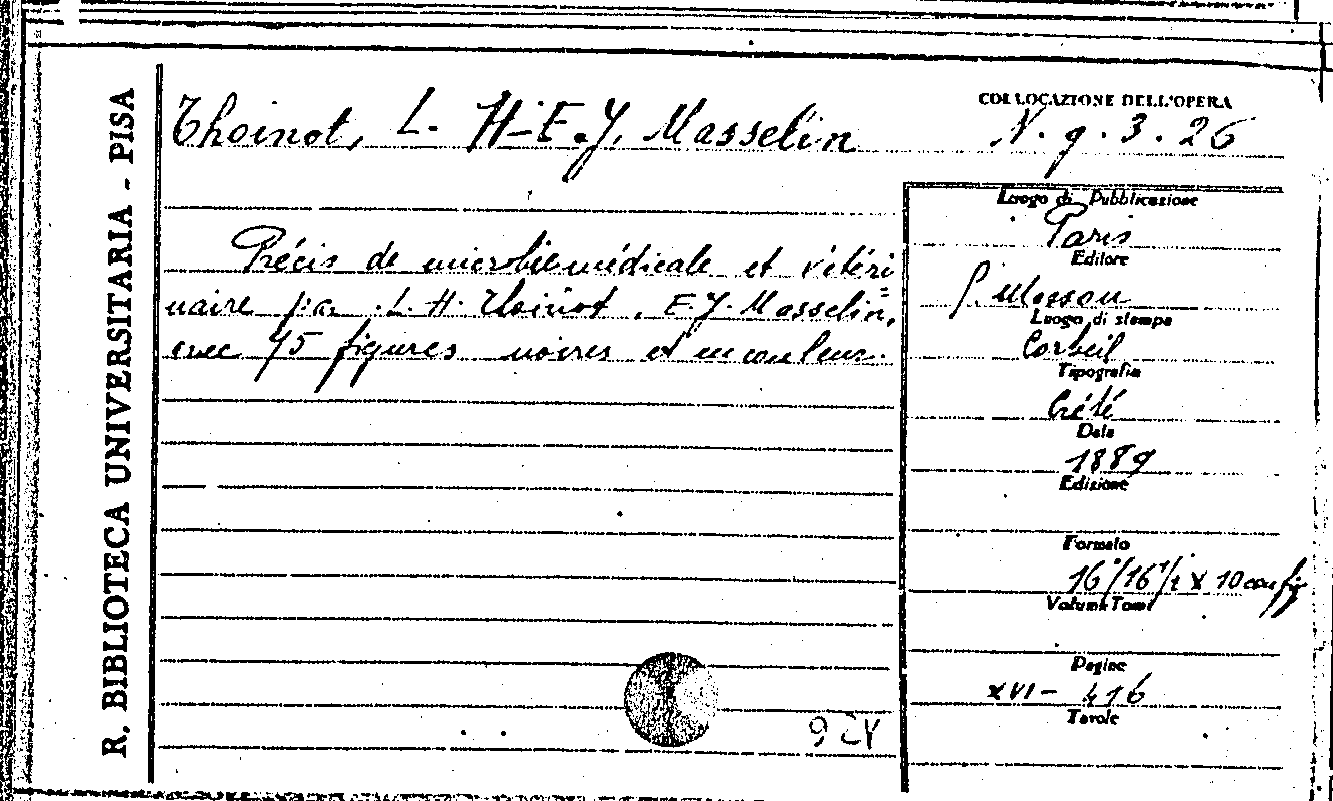 R. BIBLIOTECA UNIVERSITARIA - PISA
Thoinot, L. H-E.J. Masselin
COLLOCAZIONE DELL'OPERA
N. g. 3. 26
Précis de microbie médicale et vétéri
naire par L. H. Thoinot, E. J. Masselin,
avec 75 figures noires et en couleur.
Luogo di Pubblicazione
Paris
Editore
G. Masson
Luogo di stampa
Corbeil
Tipografia
Crété
Data
1889
Edizione
Formato
16°/16 1/2 x 10 con fig
Volumi Tomi
Pagine
XVI - 416
Tavole